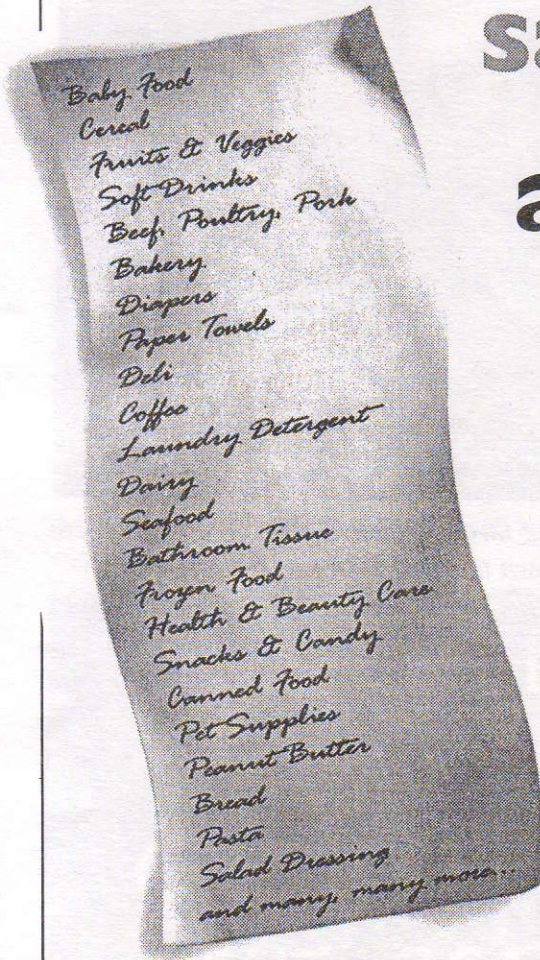 sa
a
Baby Food
Cereal
Fruits & Veggies
Soft Drinks
Beef, Poultry, Pork
Bakery
Diapers
Paper Towels
Deli
Coffee
Laundry Detergent
Dairy
Seafood
Bathroom Tissue
Frozen Food
Health & Beauty Care
Snacks & Candy
Canned Food
Pet Supplies
Peanut Butter
Bread
Pasta
Salad Dressing
and many, many more...